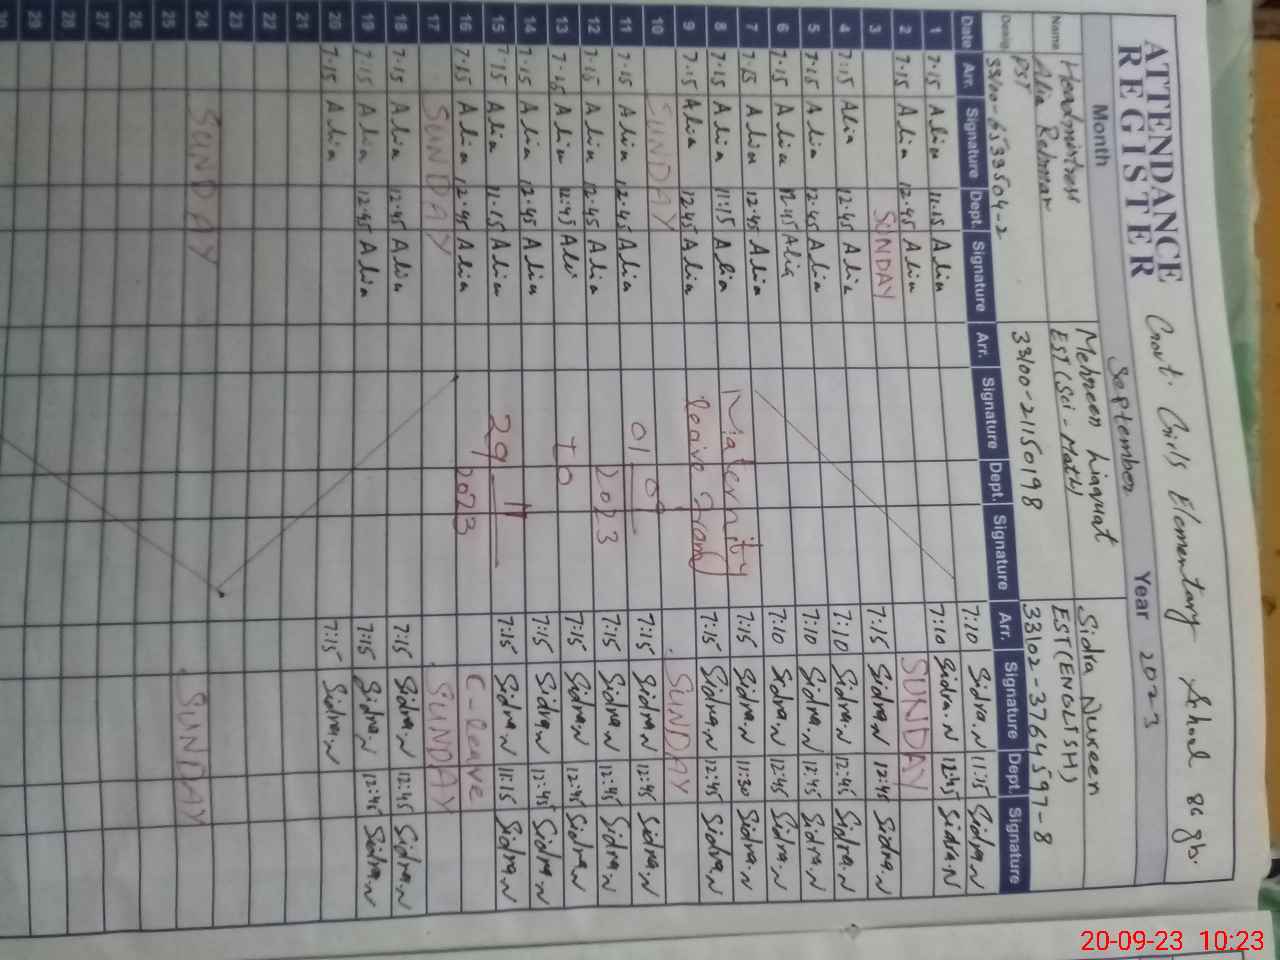 ATTENDANCE REGISTER
Govt. Girls Elementary School 86 gb.
Month September Year 2023
Name Headmistress Alia Rehman
Desig. PST
33100-6533504-2
Mehreen Liaquat
EST (Sci-Math)
33100-2115019 8
Sidra Nureen
EST (ENGLISH)
33102-3764597-8
Date Arr. Signature Dept. Signature Arr. Signature Dept. Signature Arr. Signature Dept. Signature
1 7.15 Alia 11.15 Alia 7:10 Sidra.N 11:15 Sidra.N
2 7.15 Alia 12.45 Alia 7:10 Sidra.N 12:45 Sidra.N
3 SUNDAY SUNDAY
4 7.15 Alia 12.45 Alia 7:15 Sidra.N 12:45 Sidra.N
5 7.15 Alia 12.45 Alia 7:10 Sidra.N 12:45 Sidra.N
6 7.15 Alia 12.45 Alia 7:10 Sidra.N 12:45 Sidra.N
7 7.15 Alia 12.45 Alia 7:10 Sidra.N 12:45 Sidra.N
8 7.15 Alia 11.15 Alia Maternity 7:15 Sidra.N 11:30 Sidra.N
9 7.15 Alia 12.45 Alia leave from 7:15 Sidra.N 12:45 Sidra.N
10 SUNDAY SUNDAY
11 7.15 Alia 12.45 Alia 01 09 2023 7:15 Sidra.N 12:45 Sidra.N
12 7.15 Alia 12.45 Alia 7:15 Sidra.N 12:45 Sidra.N
13 7.15 Alia 12.45 Ali to 7:15 Sidra.N 12:45 Sidra.N
14 7.15 Alia 12.45 Alia 7:15 Sidra.N 12:45 Sidra.N
15 7.15 Alia 11.15 Alia 29 11 2023 7:15 Sidra.N 11:15 Sidra.N
16 7.15 Alia 12.45 Alia C-leave
17 SUNDAY SUNDAY
18 7.15 Alia 12.45 Alia 7:15 Sidra.N 12:45 Sidra.N
19 7.15 Alia 12.45 Alia 7:15 Sidra.N 12:45 Sidra.N
20 7.15 Alia 7:15 Sidra.N
21
22
23
24 SUNDAY SUNDAY
25
26
27
28
29
20-09-23 10:23